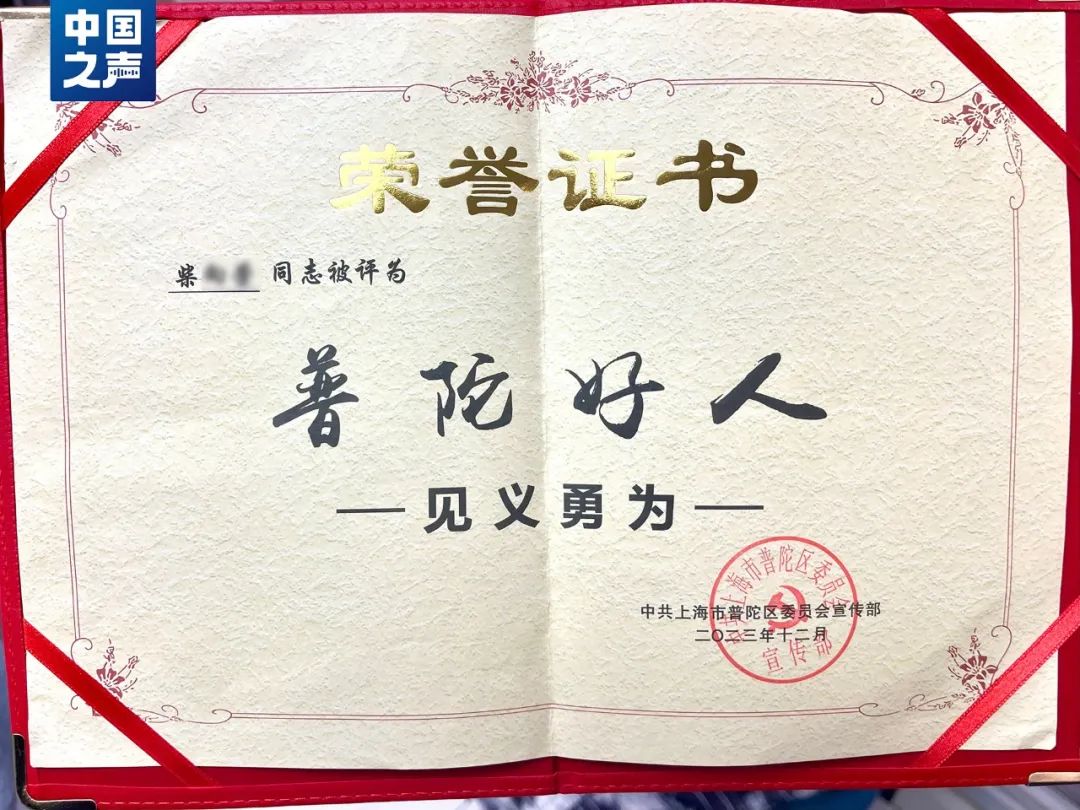 中国
之声
荣誉证书
柴 同志被评为
普陀好人
—见义勇为—
中共上海市普陀区委员会宣传部
二〇二三年十二月
中共上海市普陀区委员会
宣传部